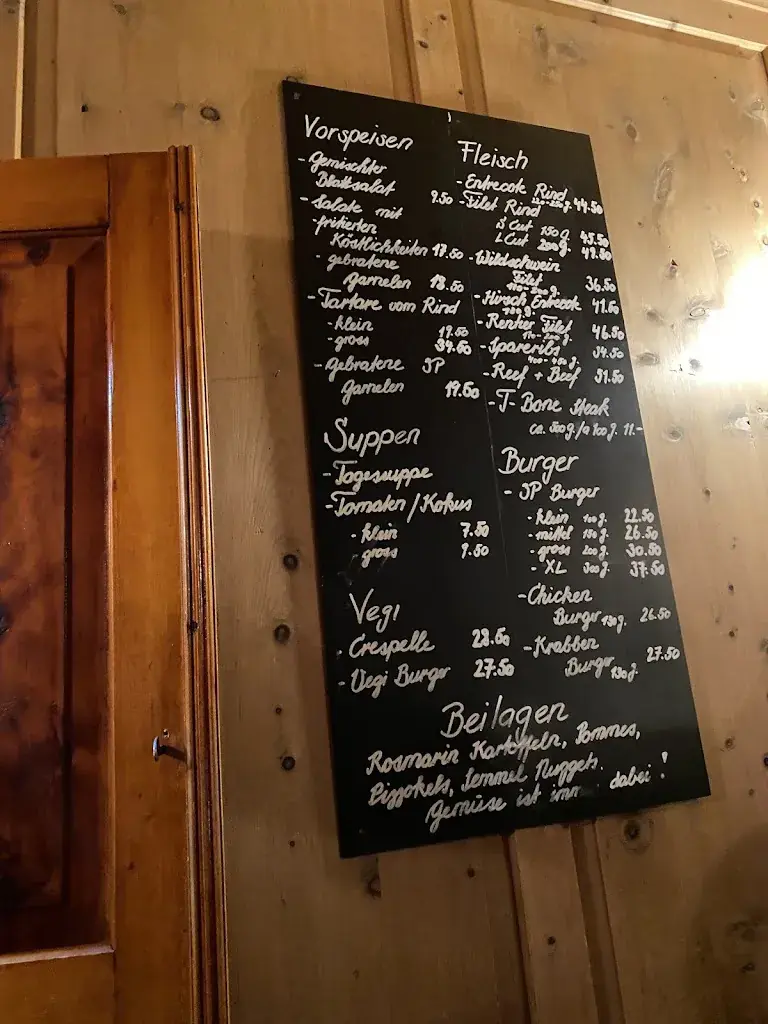 Vorspeisen
- gemischter
Blattsalat 9.50
- Salate mit
- fritierten
Köstlichkeiten 17.50
- gebratene
garnelen 18.50
- Tartare vom Rind
- klein 19.50
- gross
- gebratene JP
garnelen 19.50
Suppen
- Tagessuppe
- Tomaten/Kokus
- klein 7.50
- gross 9.50
Vegi
- Crespelle
- Vegi Burger 27.50
Fleisch
- Entrecote Rind
44.50
- Filet Rind
S Cut 150g. 45.50
L Cut 200g. 49.50
- Wildschwein
Filet 36.50
- Hirsch Entrecote 41.50
- Rentier Filet 46.50
- Spareribs 34.50
- Reef + Beef 51.50
- T-Bone Steak
ca. 500g./a 100g. 11.-
Burger
- JP Burger
- klein 100g. 22.50
- mittel 150g. 26.50
- gross 200g. 30.50
- XL 300g. 37.50
- Chicken
Burger 130g. 26.50
- Krabben
Burger 130g. 27.50
Beilagen
Rosmarin Kartoffeln, Pommes,
Pizzokels, Semmel Nuggets.
Gemüse ist imm dabei!